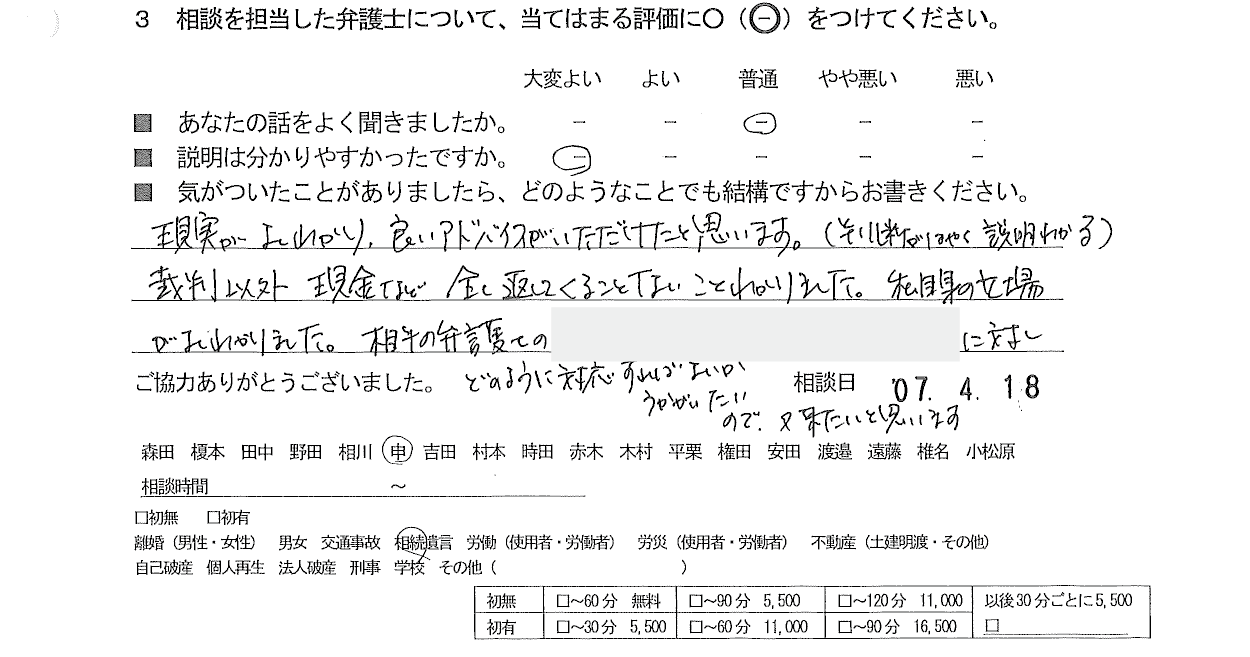 3 相談を担当した弁護士について、当てはまる評価に○(㊀)をつけてください。
大変よい よい 普通 やや悪い 悪い
■ あなたの話をよく聞きましたか。 － － － － －
■ 説明は分かりやすかったですか。 － － － － －
■ 気がついたことがありましたら、どのようなことでも結構ですからお書きください。
現実がよくわかり、良いアドバイスがいただけたと思います。(そ 判断がはやく説明わかる)
裁判以外 現金など 返してくることてないことわかりました。 の立場
がよくわかりました。相手の弁護士の に対し
ご協力ありがとうございました。 どのように対応すればよいか 相談日 '07. 4. 18
うかがいたい
ので、又来たいと思います
森田 榎本 田中 野田 相川 申 吉田 村本 時田 赤木 木村 平栗 権田 安田 渡邉 遠藤 椎名 小松原
相談時間 ～
□初無 □初有
離婚(男性・女性) 男女 交通事故 相続遺言 労働(使用者・労働者) 労災(使用者・労働者) 不動産(土建明渡・その他)
自己破産 個人再生 法人破産 刑事 学校 その他( )
初無 □～60分 無料 □～90分 5,500 □～120分 11,000 以後30分ごとに5,500
初有 □～30分 5,500 □～60分 11,000 □～90分 16,500 □